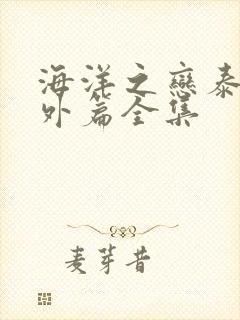 海洋之戀泰
外篇全集
麦芽昔